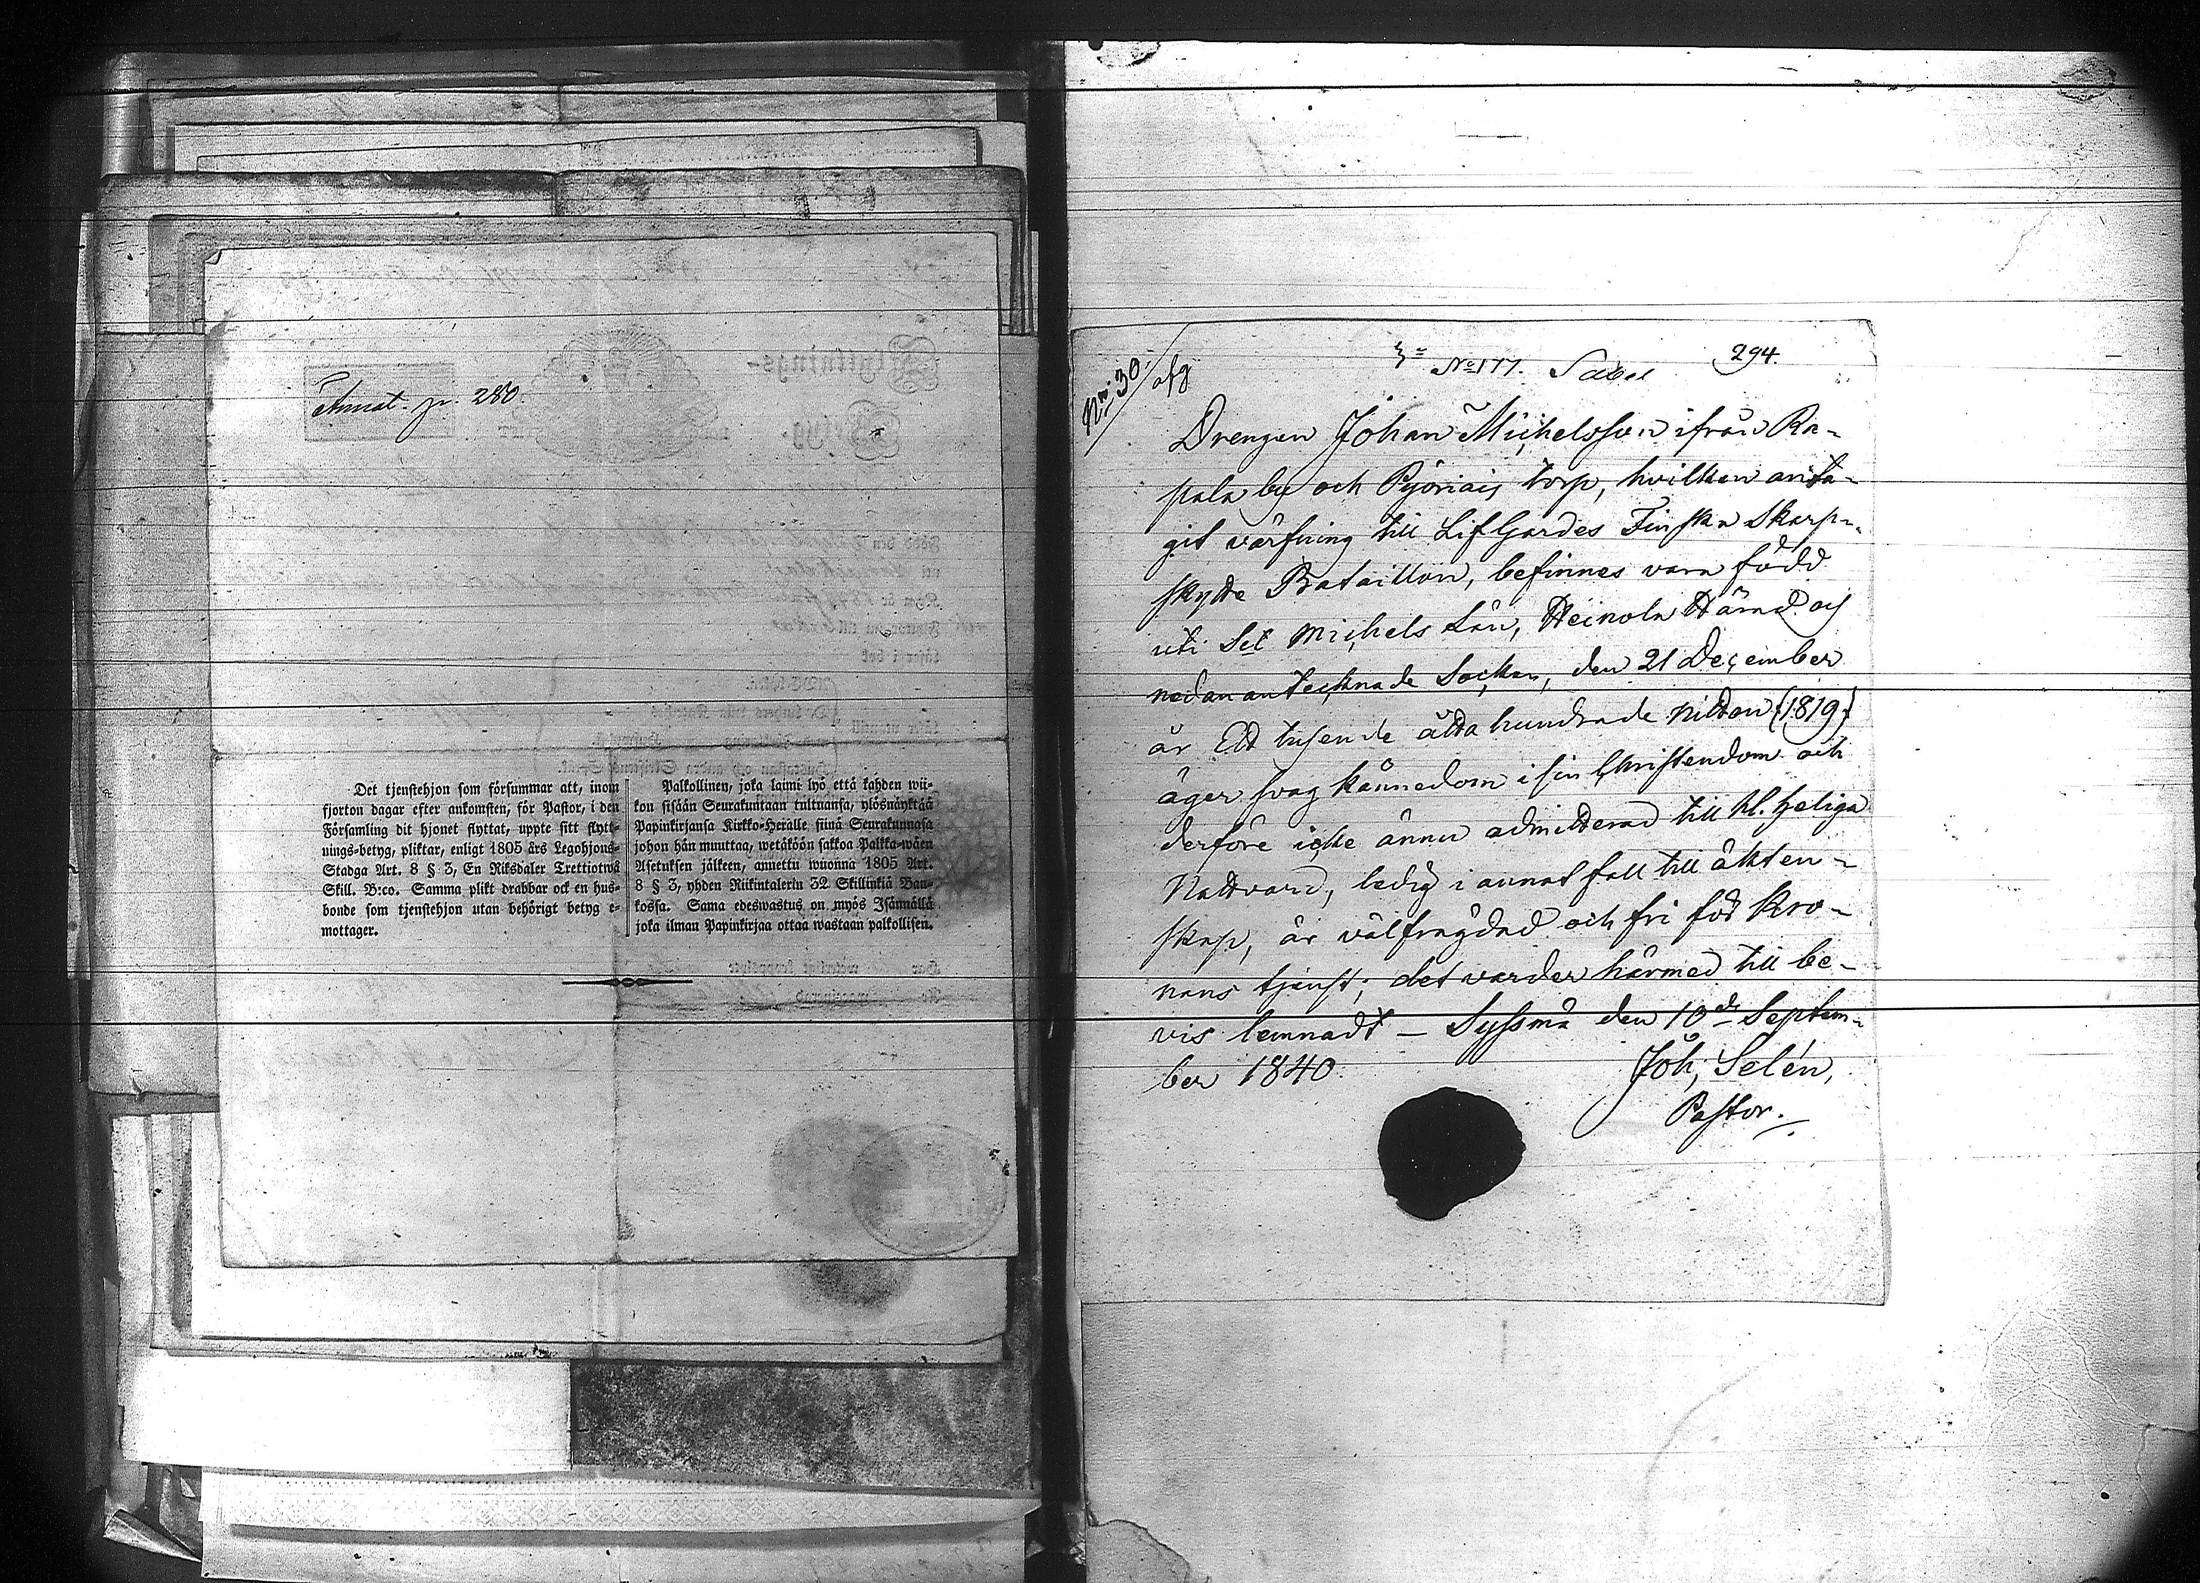 Annot. p. 280.
Det tjenstehjon som försummar att, inom
fjorton dagar efter ankomsten, för Pastor, i den
Församling dit hjonet flyttat, uppte sitt flytt-
nings-betyg, pliktar, enligt 1805 års Legohjons-
Stadga Art. 8 § 3, En Riksdaler Trettiotwå
Skill. B:co. Samma plikt drabbar ock en hus-
bonde som tjenstehjon utan behörigt betyg e-
mottager.
Palkollinen, joka laimi lyö että kahden wii-
kon sisään Seurakuntaan tultuansa, ylösnäyttää
Papinkirjansa Kirkko-Herralle siinä Seurakunnasa
johon hän muuttaa, wetäköön sakkoa Palkka-wäen
Asetuksen jälkeen, annettu wuonna 1805 Art.
8 § 3, yhden Riikintalerin 32 Skillinkiä Ban-
kossa. Sama edeswastus on myös Isännällä
joka ilman Papinkirjaa ottaa wastaan palkollisen.
No 30. afg
No 177. Sabel 294.
Drengen Johan Michelsson ifrån Ra-
pala by och Pyöriäis torp, hvilken anta-
git värfning till LifGardes Finska Skarp-
skytte Bataillon, befinnes vara född
uti Sct Michels Län, Heinola Härad och
nedanantecknade Socken, den 21 December
år Ett tusende åtta hundrade nitton (1819)
äger svag kännedom i sin Christendom och
derföre icke ännu admitterad till H. Heliga
Nattvard, ledig i annat fall till äkten-
skap, är välfrägdad och fri för Kro-
nans tjenst; det varder härmed till be-
vis lemnadt — Syssmä den 10de Septem-
ber 1840.
Joh. Selén,
Pastor.